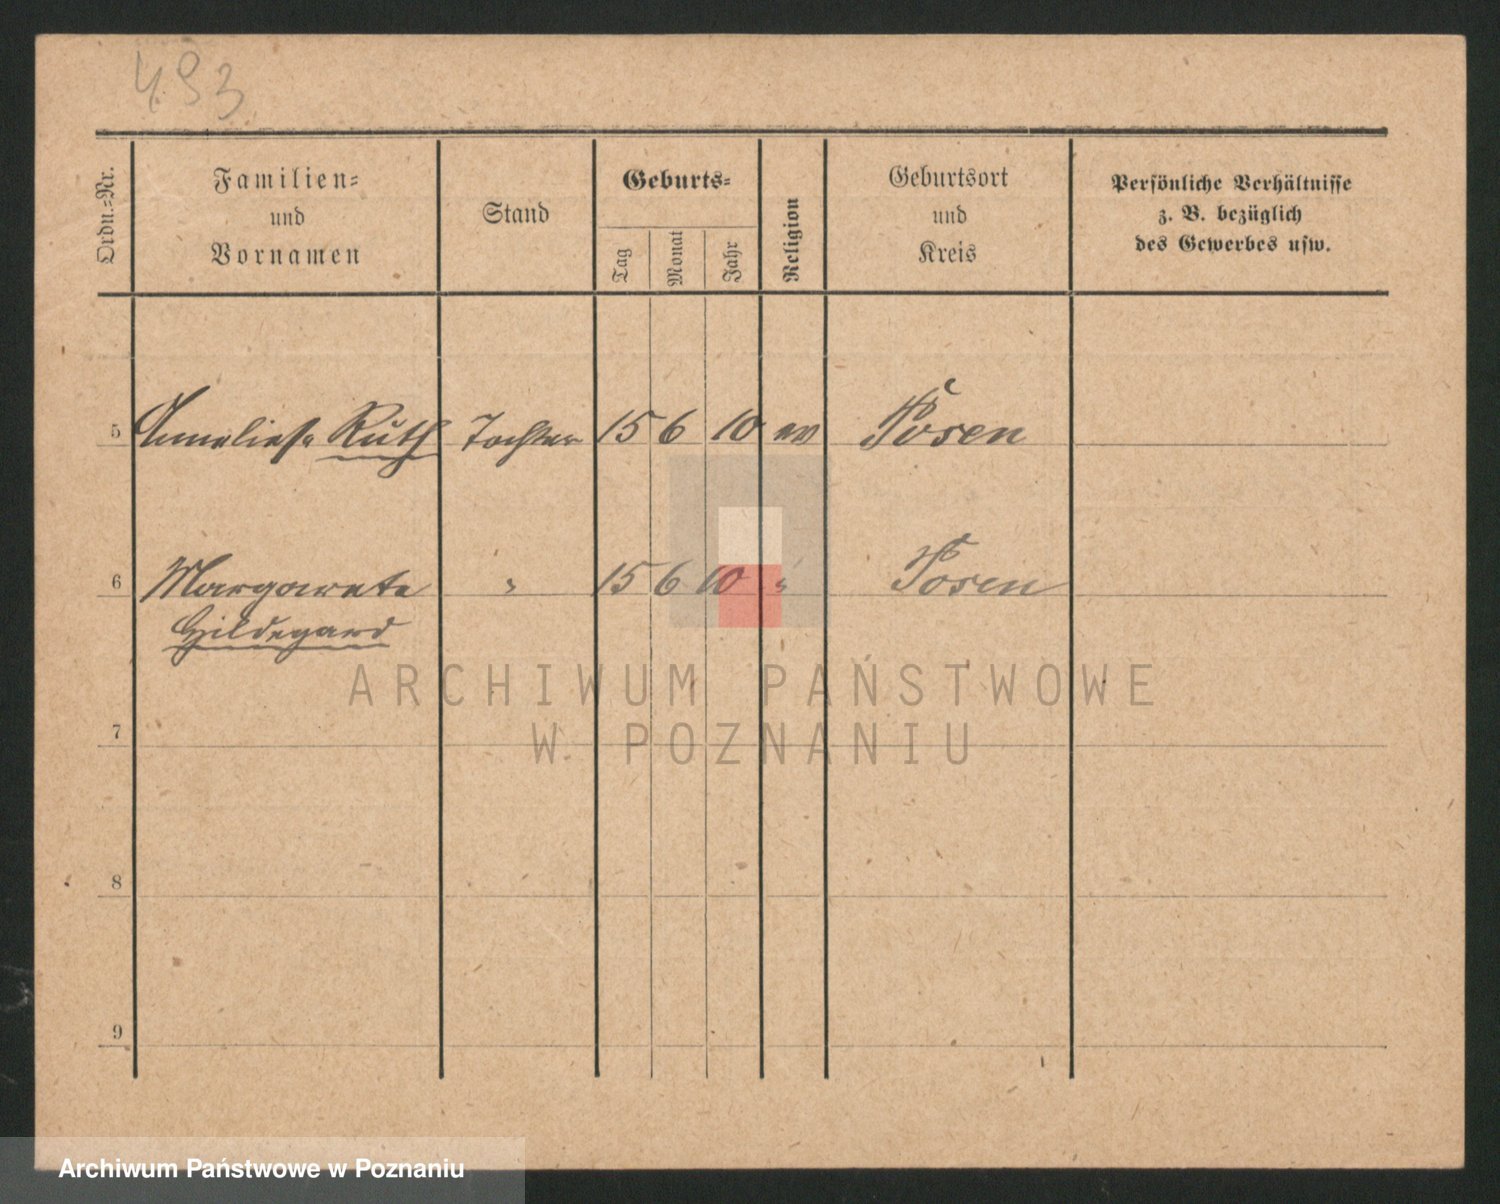 493
Ordn.-Nr.
Familien-
und
Vornamen
Stand
Geburts-
Tag
Monat
Jahr
Religion
Geburtsort
und
Kreis
Persönliche Verhältnisse
z. B. bezüglich
des Gewerbes usw.
5 Anneliese Ruth Tochter 15 6 10 ev Posen
6 Margarete " 15 6 10 " Posen
Hildegard
ARCHIWUM PAŃSTWOWE
W POZNANIU
7
8
9
Archiwum Państwowe w Poznaniu